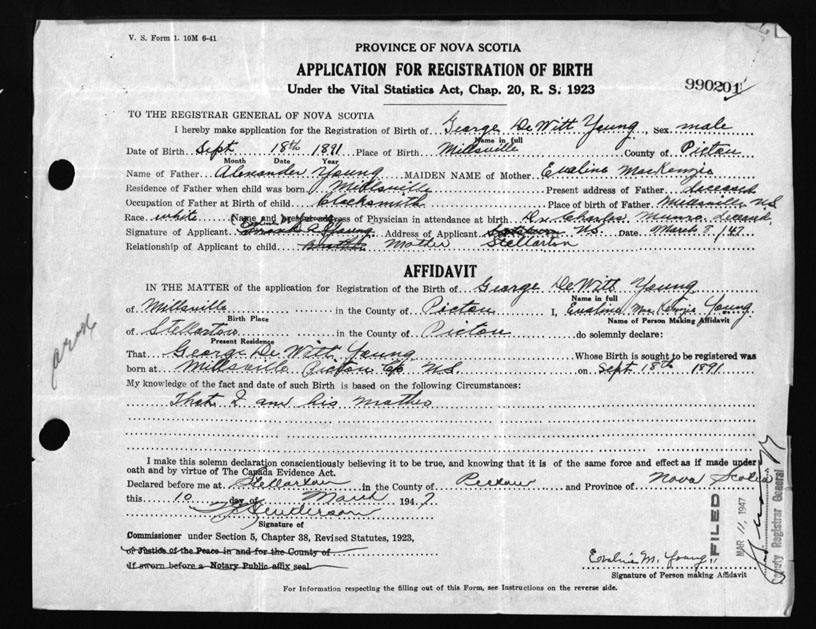 V. S. Form 1. 10M 6-41
PROVINCE OF NOVA SCOTIA
APPLICATION FOR REGISTRATION OF BIRTH
Under the Vital Statistics Act, Chap. 20, R. S. 1923
990201
TO THE REGISTRAR GENERAL OF NOVA SCOTIA
I hereby make application for the Registration of Birth of George DeWitt Young, Sex male
Name in full
Date of Birth Sept 18th 1891 Place of Birth Millsville County of Pictou
Month Date Year
Name of Father Alexander Young MAIDEN NAME of Mother Evaline MacKenzie
Residence of Father when child was born Millsville Present address of Father deceased
Occupation of Father at Birth of child Blacksmith Place of birth of Father Millsville N.S.
Race white Name and present address of Physician in attendance at birth Dr. Charles Munro
Signature of Applicant Address of Applicant N.S. Date March 8/47
Relationship of Applicant to child Brother Mother Stellarton
AFFIDAVIT
IN THE MATTER of the application for Registration of the Birth of George DeWitt Young
Name in full
of Millsville in the County of Pictou I, Evaline MacKenzie Young
Birth Place Name of Person Making Affidavit
of Stellarton in the County of Pictou do solemnly declare:
Present Residence
That George DeWitt Young Whose Birth is sought to be registered was
born at Millsville Pictou Co N.S. on Sept. 18th 1891
My knowledge of the fact and date of such Birth is based on the following Circumstances:
That I am his Mother
I make this solemn declaration conscientiously believing it to be true, and knowing that it is of the same force and effect as if made under
oath and by virtue of The Canada Evidence Act.
Declared before me at Stellarton in the County of Pictou and Province of Nova Scotia
this 10 day of March 1947
Henderson
Signature of
Commissioner under Section 5, Chapter 38, Revised Statutes, 1923,
or Justice of the Peace in and for the County of
If sworn before a Notary Public affix seal
Evaline M. Young
Signature of Person making Affidavit
For Information respecting the filling out of this Form, see Instructions on the reverse side.
FILED
MAR 11 1947
Deputy Registrar General